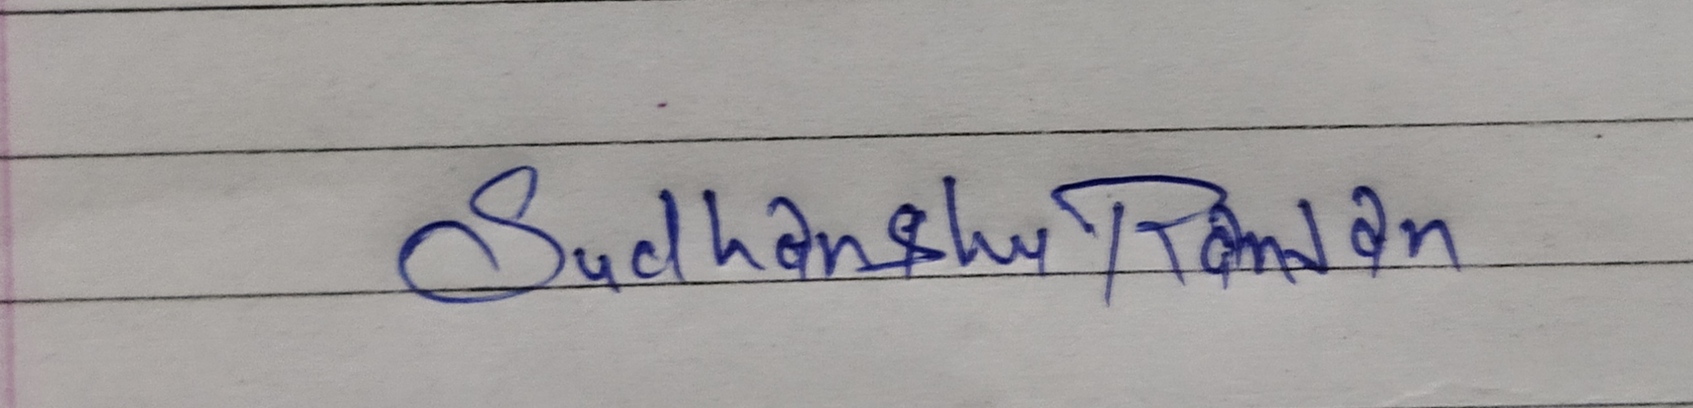 Sudhanshu Ranjan